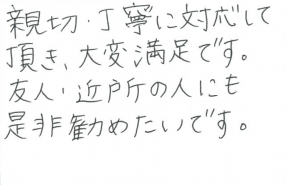 親切・丁寧に対応して
頂き、大変満足です。
友人・近所の人にも
是非勧めたいです。